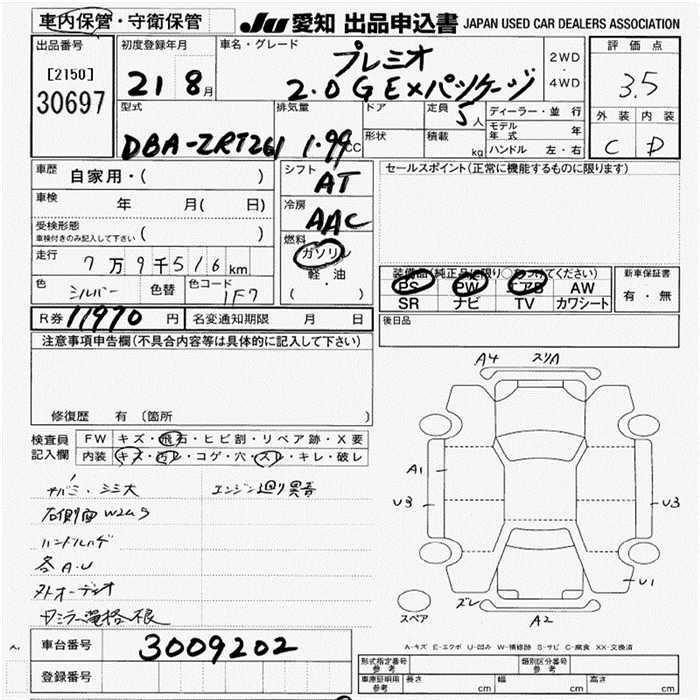 車内保管・守衛保管 JU 愛知 出品申込書 JAPAN USED CAR DEALERS ASSOCIATION
出品番号 初度登録年月 車名・グレード 2WD・4WD 評価点
[2150] 21 8月 プレミオ 3.5
30697 2.0 G EXパッケージ
型式 排気量 ドア 定員 5人 ディーラー・並行 外装 内装
モデル年式 年
DBA-ZRT261 1.99CC 形状 積載 kg ハンドル 左・右 C D
車歴 自家用・( ) シフト AT セールスポイント(正常に機能するものに限ります)
車検 年 月( 日) 冷房 AAC
受検形態
車検付きのみ記入して下さい ( ) 燃料
走行 7万9千516km ガソリン
軽油
( ・ )
装備品(純正品に限り○をつけてください) 新車保証書
PS PW エアB AW 有・無
色 シルバー 色替 色コード 1F7 SR ナビ TV カワシート
R券 11970 円 名変通知期限 月 日 後日品
注意事項申告欄(不具合内容等は具体的に記入して下さい)
修復歴 有 (箇所 )
検査員記入欄 FW キズ・飛石・ヒビ割・リペア跡・X要
内装 キズ・汚レ・コゲ・穴・スレ・キレ・破レ
エンジン廻り異音
右側面W2US
ハンドルハゲ
各A.U
A4 スリA
A1
U3 U3
U1
スペア ズレ A2
A-キズ E-エクボ U-凹み W-補修跡 S-サビ C-腐食 XX-交換済
車台番号 3009202
登録番号
型式指定番号 参考 類別区分番号 参考
車庫証明用 参考 長さ cm 幅 cm 高さ cm